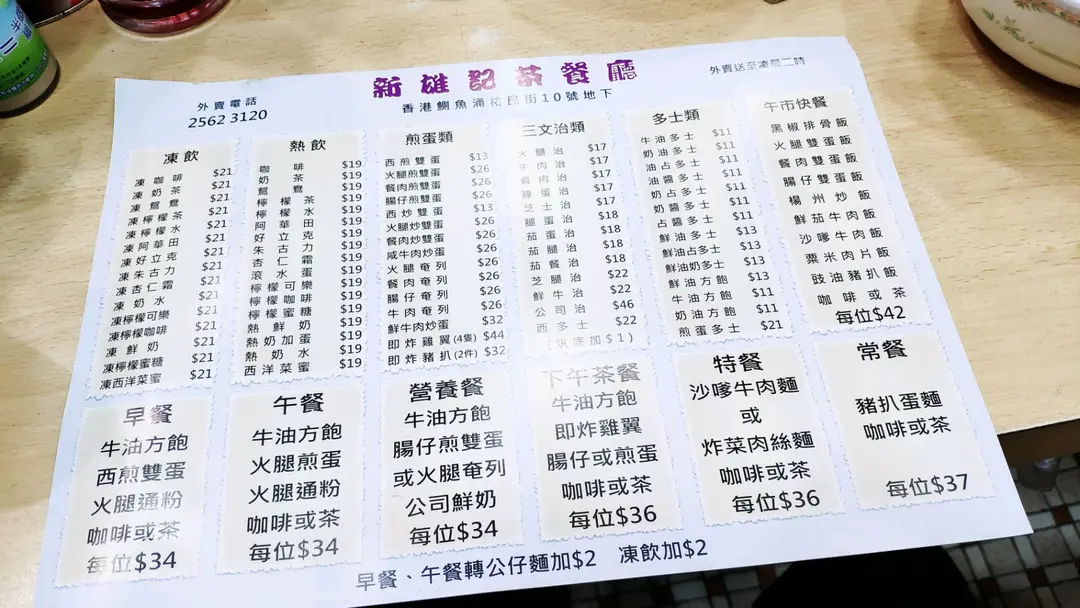 新雄記茶餐廳
外賣電話
2562 3120
香港鰂魚涌祐民街10號地下
外賣送至凌晨二時
凍飲
凍咖啡 $21
凍奶茶 $21
凍鴛鴦 $21
凍檸檬茶 $21
凍檸檬水 $21
凍阿華田 $21
凍好立克 $21
凍朱古力 $21
凍杏仁霜 $21
凍奶水 $21
凍檸檬可樂 $21
凍檸檬咖啡 $21
凍鮮奶 $21
凍檸檬蜜糖 $21
凍西洋菜蜜 $21
熱飲
咖啡 $19
奶茶 $19
鴛鴦 $19
檸檬茶 $19
檸檬水 $19
阿華田 $19
好立克 $19
朱古力 $19
杏仁霜 $19
滾水蛋 $19
檸檬可樂 $19
檸檬咖啡 $19
檸檬蜜糖 $19
熱鮮奶 $19
熱奶加蛋 $19
熱奶水 $19
西洋菜蜜 $19
煎蛋類
西煎雙蛋 $13
火腿煎雙蛋 $26
餐肉煎雙蛋 $26
腸仔煎雙蛋 $26
西炒雙蛋 $13
火腿炒雙蛋 $26
餐肉炒雙蛋 $26
咸牛肉炒蛋 $26
火腿奄列 $26
餐肉奄列 $26
腸仔奄列 $26
牛肉奄列 $26
鮮牛肉炒蛋 $32
即炸雞翼(4隻) $44
即炸豬扒(2件) $32
三文治類
火腿治 $17
牛肉治 $17
餐肉治 $17
鮮蛋治 $17
芝士治 $17
腿蛋治 $18
茄蛋治 $18
茄腿治 $18
茄餐治 $18
芝腿治 $22
鮮牛治 $22
公司治 $46
西多士 $22
(烘底加$1)
多士類
牛油多士 $11
奶油多士 $11
油占多士 $11
油醬多士 $11
奶占多士 $11
奶醬多士 $11
占醬多士 $11
鮮油多士 $13
鮮油占多士 $13
鮮油奶多士 $13
鮮油方飽 $13
牛油方飽 $11
奶油方飽 $11
煎蛋多士 $21
午市快餐
黑椒排骨飯
火腿雙蛋飯
餐肉雙蛋飯
腸仔雙蛋飯
楊州炒飯
鮮茄牛肉飯
沙嗲牛肉飯
粟米肉片飯
豉油豬扒飯
咖啡或茶
每位$42
早餐
牛油方飽
西煎雙蛋
火腿通粉
咖啡或茶
每位$34
午餐
牛油方飽
火腿煎蛋
火腿通粉
咖啡或茶
每位$34
營養餐
牛油方飽
腸仔煎雙蛋
或火腿奄列
公司鮮奶
每位$34
下午茶餐
牛油方飽
即炸雞翼
腸仔或煎蛋
咖啡或茶
每位$36
特餐
沙嗲牛肉麵
或
炸菜肉絲麵
咖啡或茶
每位$36
常餐
豬扒蛋麵
咖啡或茶
每位$37
早餐、午餐轉公仔麵加$2 凍飲加$2